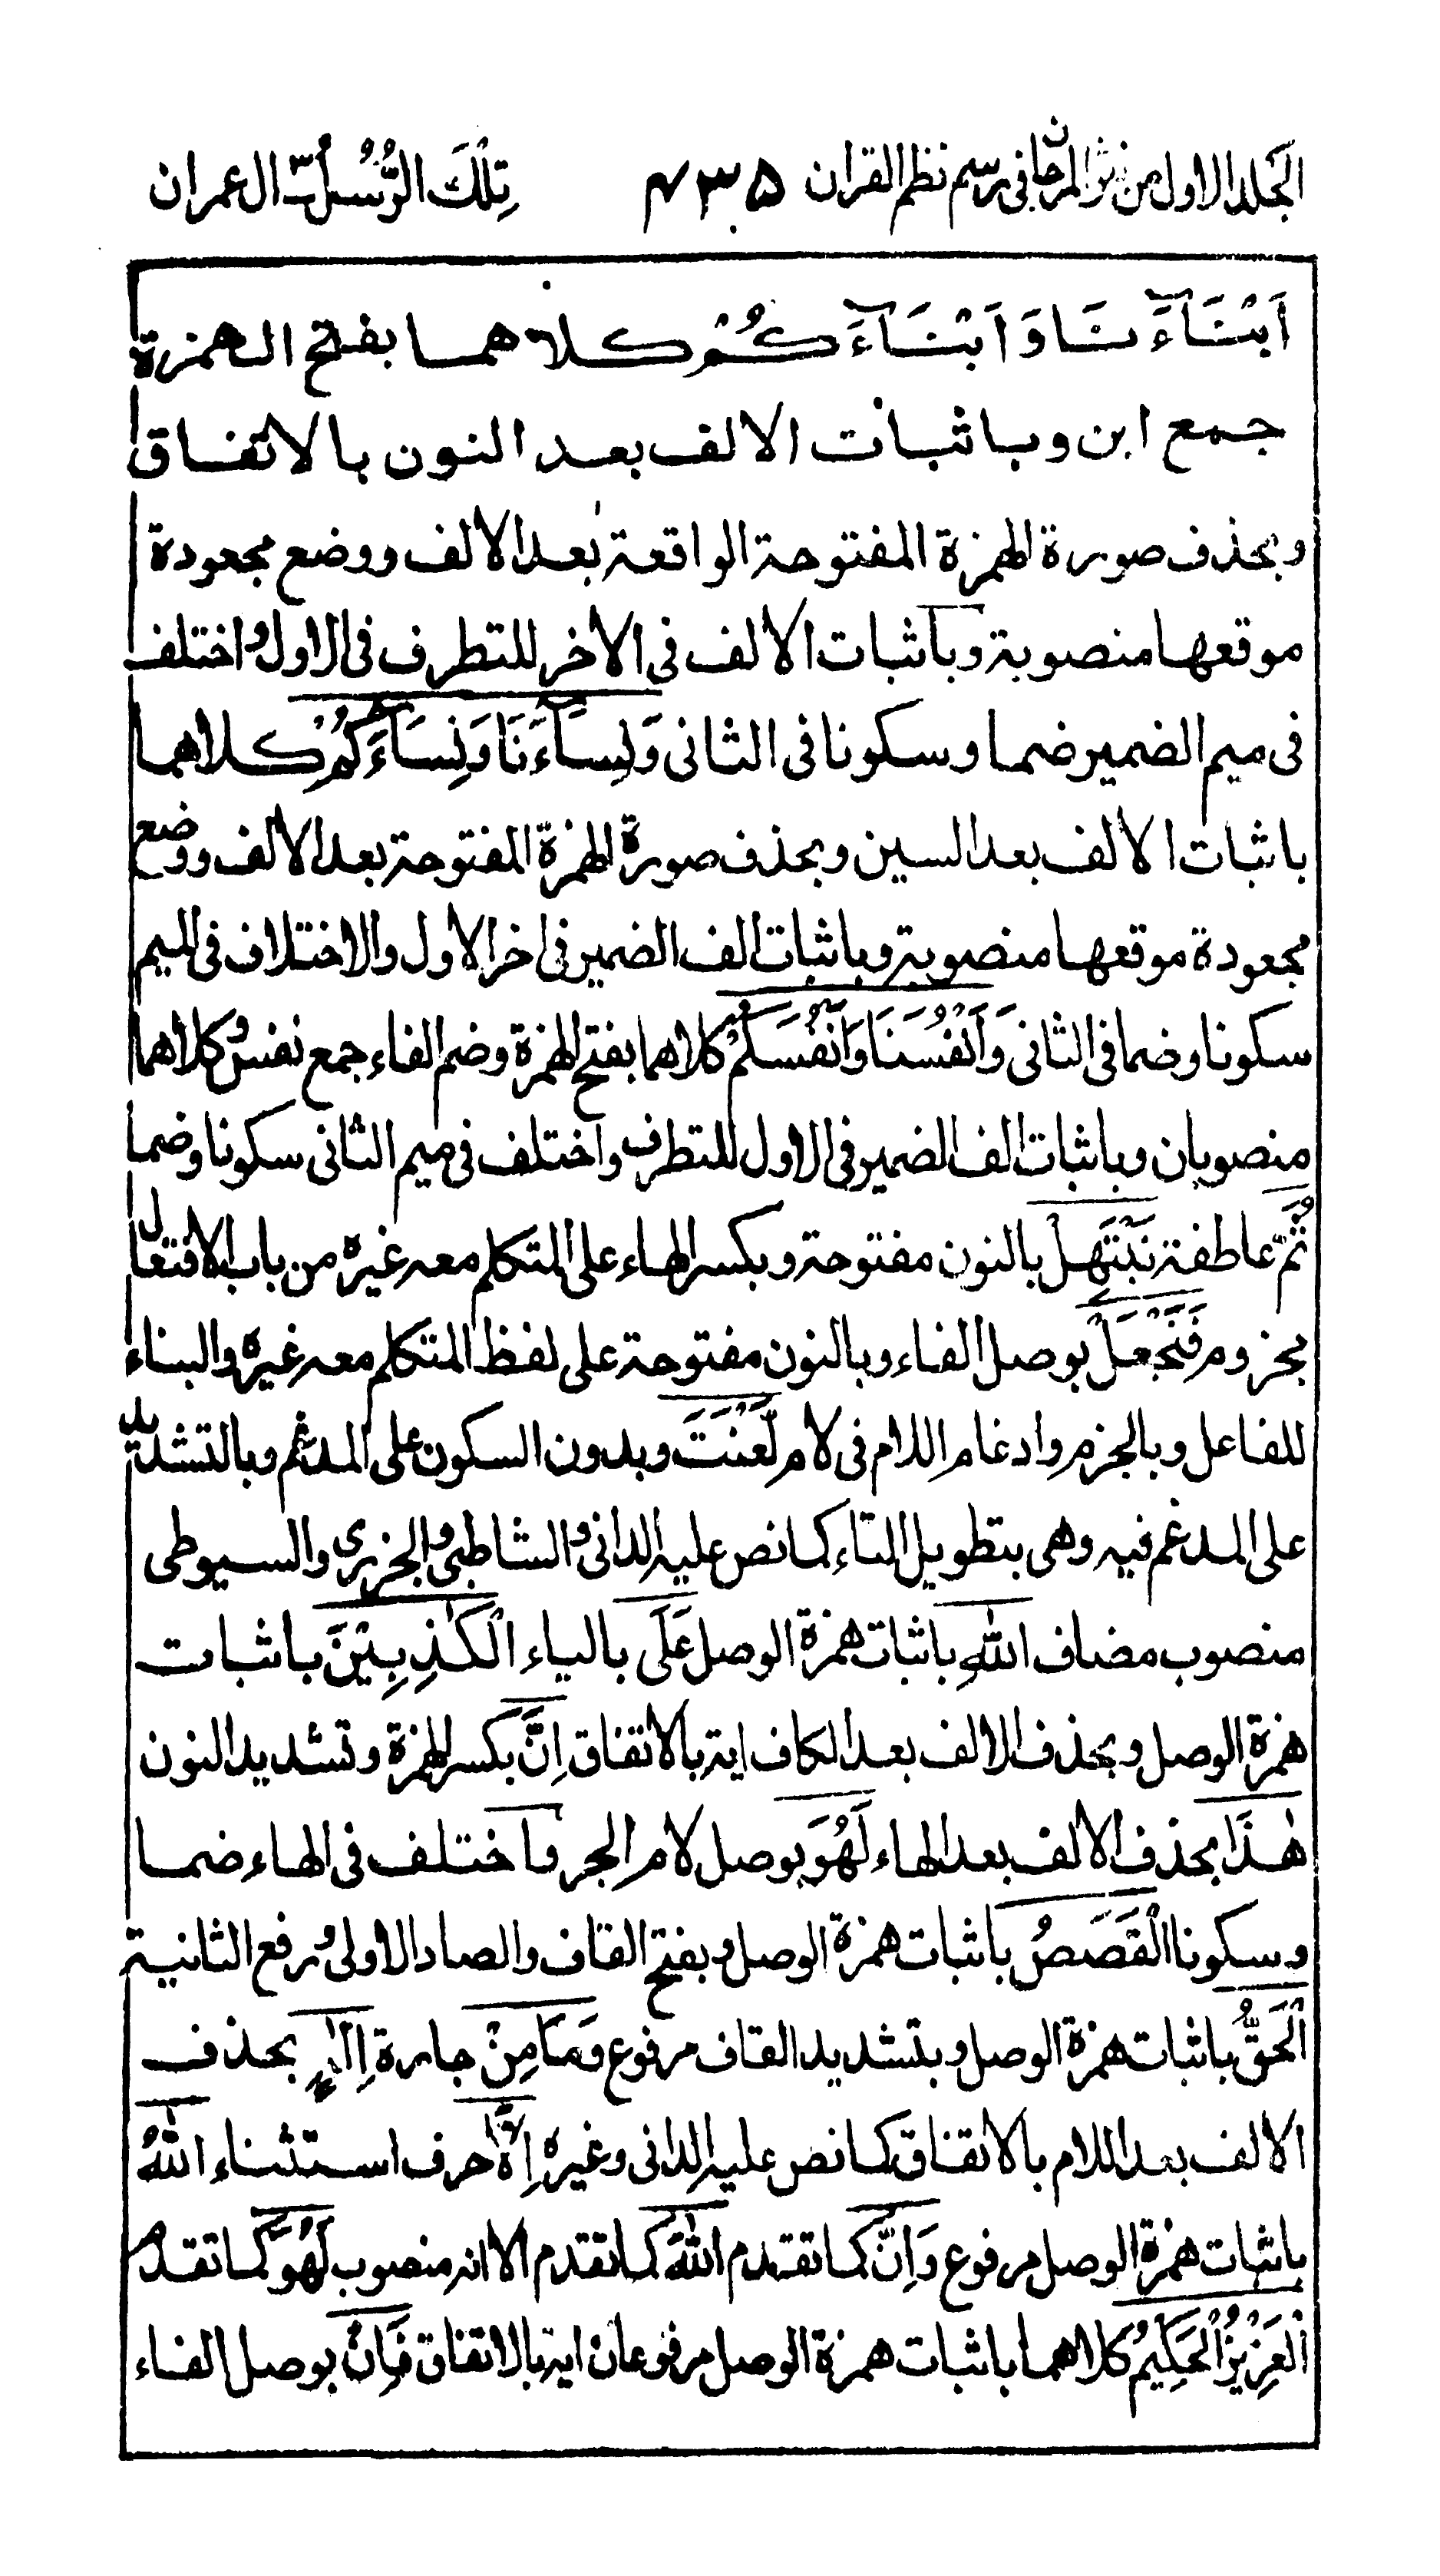 الجلد الاول من نثر المرجان فى رسم نظم القران ۴۳۵ تِلْكَ الرُّسُلُ ٣ ال عمران
اَبْنَآءَنَا وَاَبْنَآءَكُمْ كلاهما بفتح الهمزة
جمع ابن وباثبات الالف بعد النون بالاتفاق
وبحذف صورة الهمزة المفتوحة الواقعة بعد الالف ووضع مجعودة
موقعها منصوبة وباثبات الالف فى الاخر للتطرف فى الاول واختلف
فى ميم الضمير ضما وسكونا فى الثانى وَنِسَآءَنَا وَنِسَآءَكُمْ كلاهما
باثبات الالف بعد السين وبحذف صورة الهمزة المفتوحة بعد الالف ووضع
مجعودة موقعها منصوبة وباثبات الف الضمير فى اخر الاول والاختلاف فى الميم
سكونا وضما فى الثانى وَاَنْفُسَنَا وَاَنْفُسَكُمْ كلاهما بفتح الهمزة وضم الفاء جمع نفس وكلاهما
منصوبان وباثبات الف الضمير فى الاول للتطرف واختلف فى ميم الثانى سكونا وضما
ثُمَّ عاطفة نَبْتَهِلْ بالنون مفتوحة وبكسر الهاء على المتكلم معه غيره من باب الافتعال
مجزوم فَنَجْعَلْ بوصل الفاء وبالنون مفتوحة على لفظ المتكلم معه غيره والبناء
للفاعل وبالجزم وادغام اللام فى لام لَّعْنَتَ وبدون السكون على المدغم وبالتشديد
على المدغم فيه وهى بتطويل التاء كما نص عليه الدانى والشاطبى والجزرى والسيوطى
منصوب مضاف اللّٰهِ باثبات همزة الوصل عَلَى بالياء الْكٰذِبِيْنَ باثبات
همزة الوصل وبحذف الالف بعد الكاف اية بالاتفاق اِنَّ بكسر الهمزة وتشديد النون
هٰذَا بحذف الالف بعد الهاء لَهُوَ بوصل لام الجر واختلف فى الهاء ضما
وسكونا الْقَصَصُ باثبات همزة الوصل وبفتح القاف والصاد الاولى ورفع الثانية
الْحَقُّ باثبات همزة الوصل وبتشديد القاف مرفوع وَمَا مِنْ جارة اِلٰهٍ بحذف
الالف بعد اللام بالاتفاق كما نص عليه الدانى وغيره اِلَّا حرف استثناء اللّٰهُ
باثبات همزة الوصل مرفوع وَاِنَّ كما تقدم اللّٰهَ كما تقدم الا انه منصوب لَهُوَ كما تقدم
الْعَزِيْزُ الْحَكِيْمُ كلاهما باثبات همزة الوصل مرفوعان اية بالاتفاق فَاِنْ بوصل الفاء